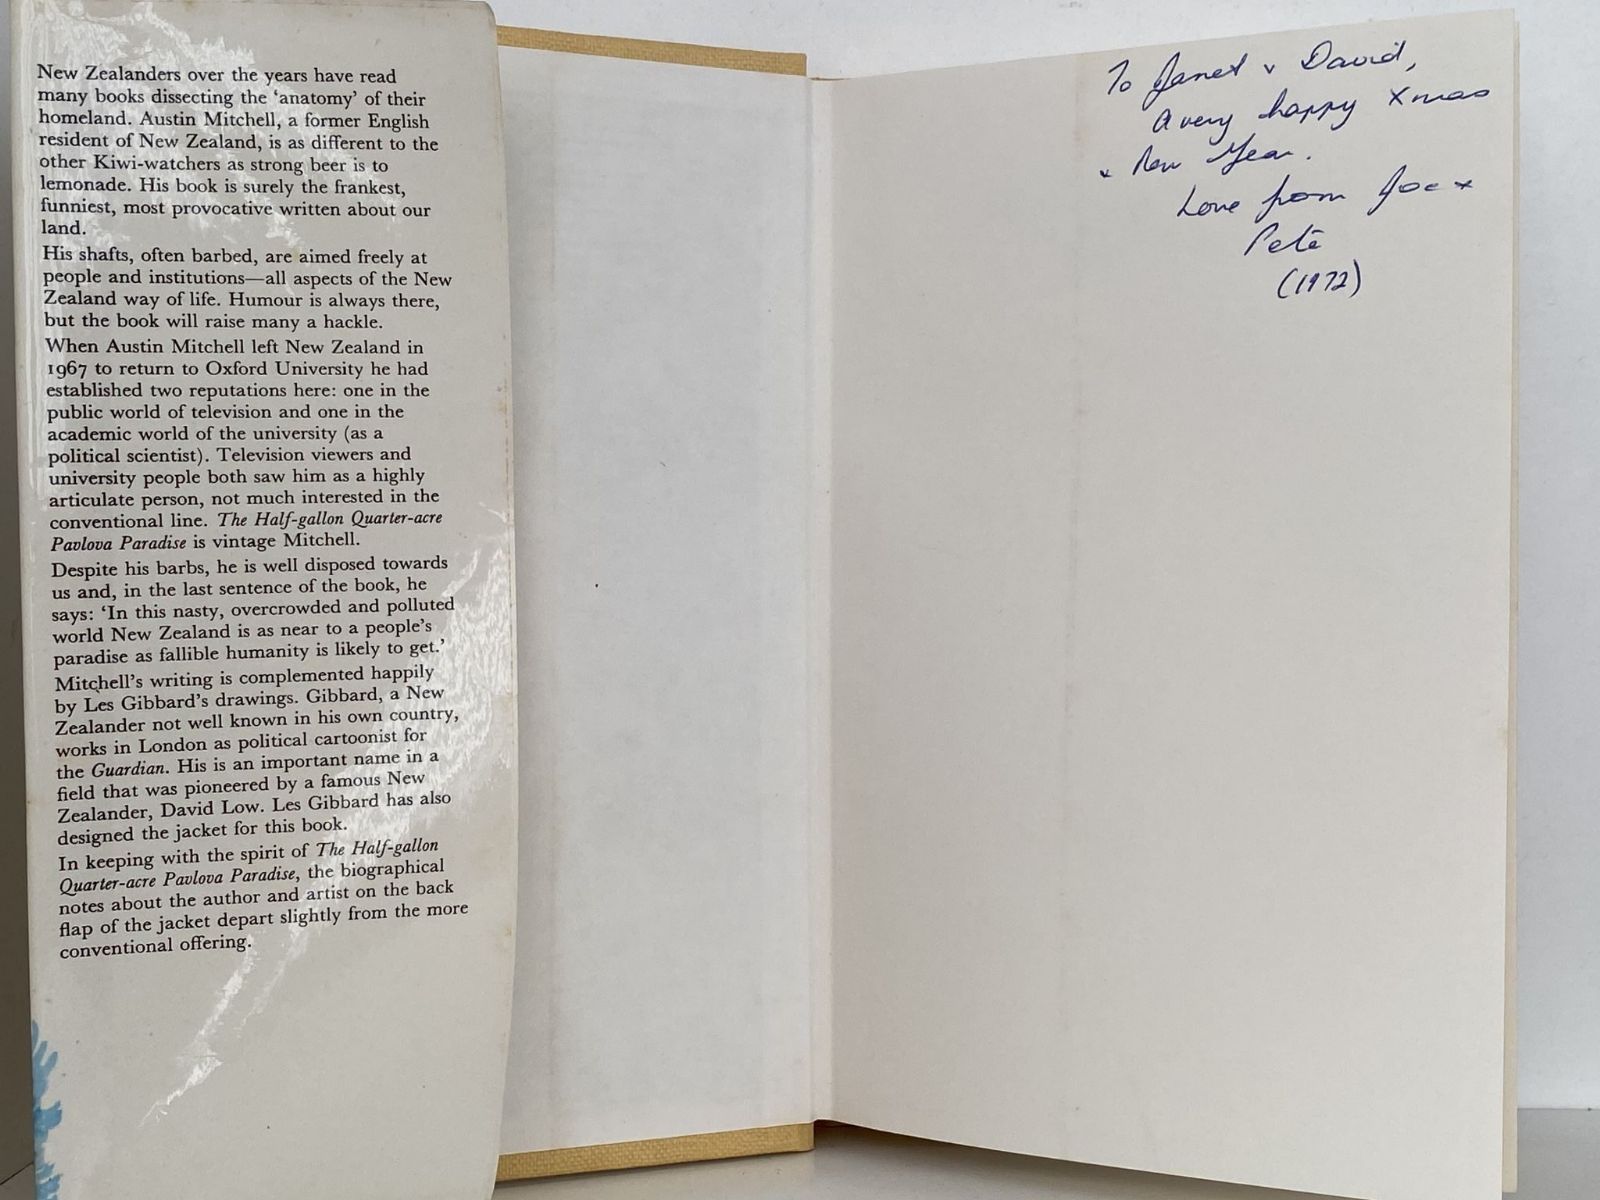 New Zealanders over the years have read
many books dissecting the ‘anatomy’ of their
homeland. Austin Mitchell, a former English
resident of New Zealand, is as different to the
other Kiwi-watchers as strong beer is to
lemonade. His book is surely the frankest,
funniest, most provocative written about our
land.
His shafts, often barbed, are aimed freely at
people and institutions—all aspects of the New
Zealand way of life. Humour is always there,
but the book will raise many a hackle.
When Austin Mitchell left New Zealand in
1967 to return to Oxford University he had
established two reputations here: one in the
public world of television and one in the
academic world of the university (as a
political scientist). Television viewers and
university people both saw him as a highly
articulate person, not much interested in the
conventional line. The Half-gallon Quarter-acre
Pavlova Paradise is vintage Mitchell.
Despite his barbs, he is well disposed towards
us and, in the last sentence of the book, he
says: ‘In this nasty, overcrowded and polluted
world New Zealand is as near to a people’s
paradise as fallible humanity is likely to get.’
Mitchell’s writing is complemented happily
by Les Gibbard’s drawings. Gibbard, a New
Zealander not well known in his own country,
works in London as political cartoonist for
the Guardian. His is an important name in a
field that was pioneered by a famous New
Zealander, David Low. Les Gibbard has also
designed the jacket for this book.
In keeping with the spirit of The Half-gallon
Quarter-acre Pavlova Paradise, the biographical
notes about the author and artist on the back
flap of the jacket depart slightly from the more
conventional offering.
To Janet & David,
A very happy Xmas
& New Year.
Love from Joe &
Pete
(1972)